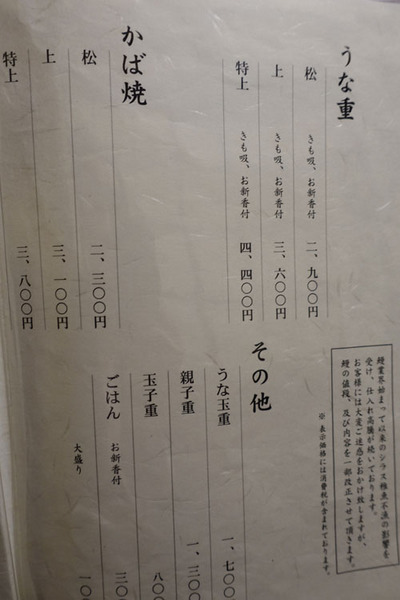 うな重
松 きも吸、お新香付 二、九〇〇円
上 きも吸、お新香付 三、六〇〇円
特上 きも吸、お新香付 四、四〇〇円
かば焼
松 二、三〇〇円
上 三、一〇〇円
特上 三、八〇〇円
鰻業界始まって以来のシラス稚魚不漁の影響を
受け、仕入れ高騰が続いております。
お客様には大変ご迷惑をおかけ致しますが、
鰻の値段、及び内容を一部改正させて頂きます。
※ 表示価格には消費税が含まれております。
その他
うな玉重 一、七〇〇
親子重 一、三〇〇
玉子重 八〇〇
ごはん お新香付 三〇
大盛り 一〇